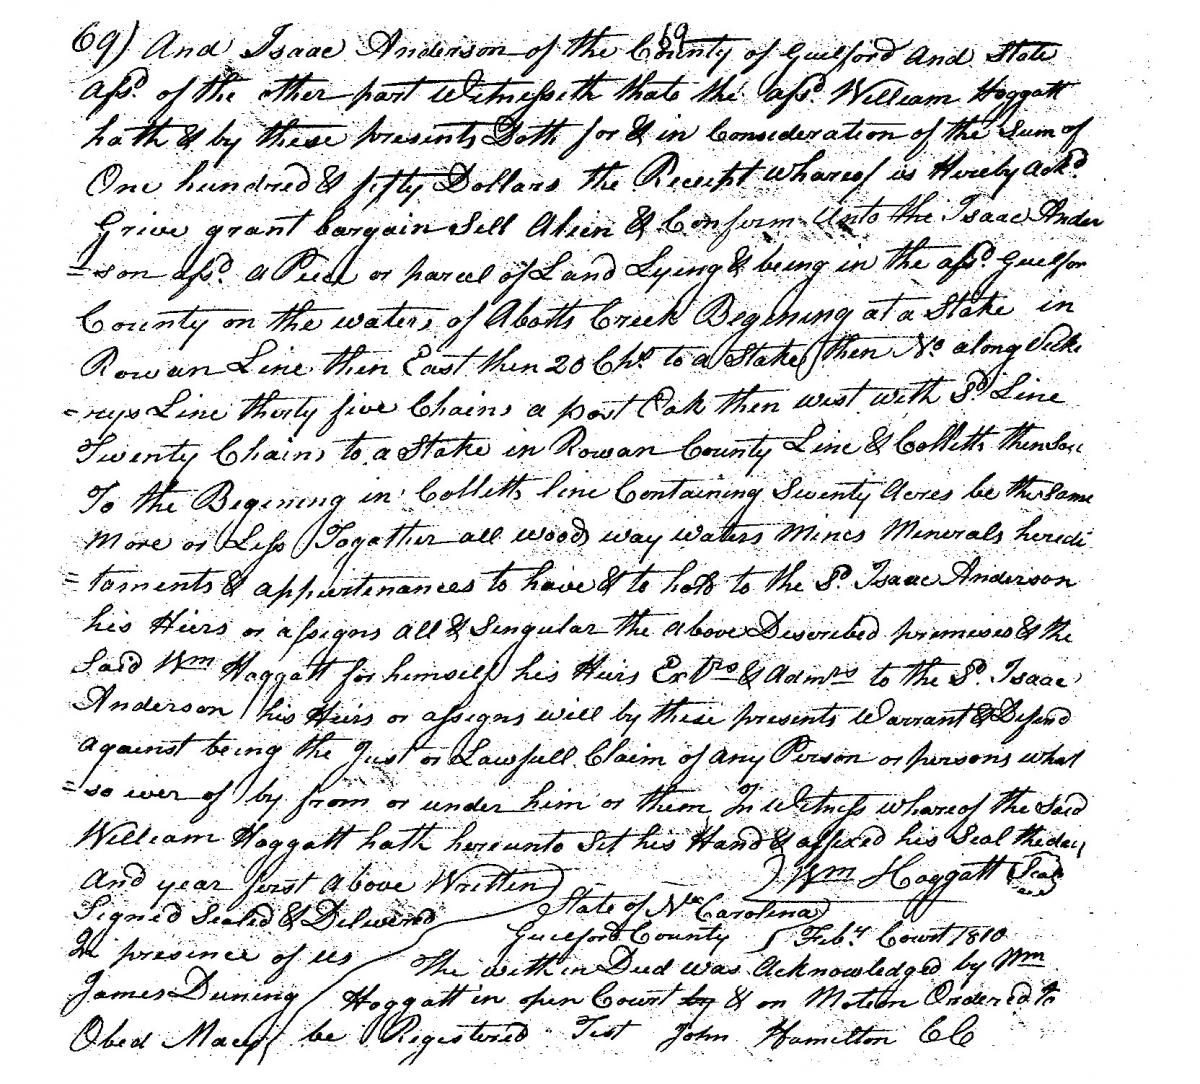 69) And Isaac Anderson of the County of Guilford And State
69
afsd. of the other part Witnesseth thate the afsd. William Hoggatt
hath & by these presents Doth for & in Consideration of the Sum of
One hundred & fifty Dollars the Receipt whareof is Hereby Ackd.
Grive grant bargain Sell Alien & Confirm Unto the Isaac Ander
=son afsd. a Piece or parcel of Land Lying & being in the afsd. Guilfor
County on the waters of Abotts Creek Begining at a Stake in
Rowan Line then East then 20 Chs. to a Stake then No. along
=rys Line thirty five Chains a post Oak then west with Sd. Line
Twenty Chains to a Stake in Rowan County Line & Colletts then Sou
To the Begining in Colletts line Containing Seventy Acres be the Same
More or Less Togather all wood way waters Mines Minerals heredi
=taments & appurtenances to have & to hold to the Sd. Isaac Anderson
his Hiers or assigns All & Singular the above Discribed premises & the
Said Wm Hoggatt for himself his Heirs Extrs & Admrs to the Sd. Isaac
Anderson his Heirs or assigns will by these presents Warrant & Defend
against being the Just or Lawfull Claim of any Person or persons what
=so ever of by from or under him or them In Witness whareof the Said
William Hoggatt hath hereunto Set his Hand & affixed his Seal the day
And year first above Written) Wm Hoggatt (Seal)
Signed Seald & Delivered
In presence of us
James Duning
Obed Macy
State of No. Carolina
Guilford County Feby Court 1810
The within Deed was Acknowledged by Wm
Hoggatt in open Court by & on Motion Ordered to
be Registered Test John Hamilton CC